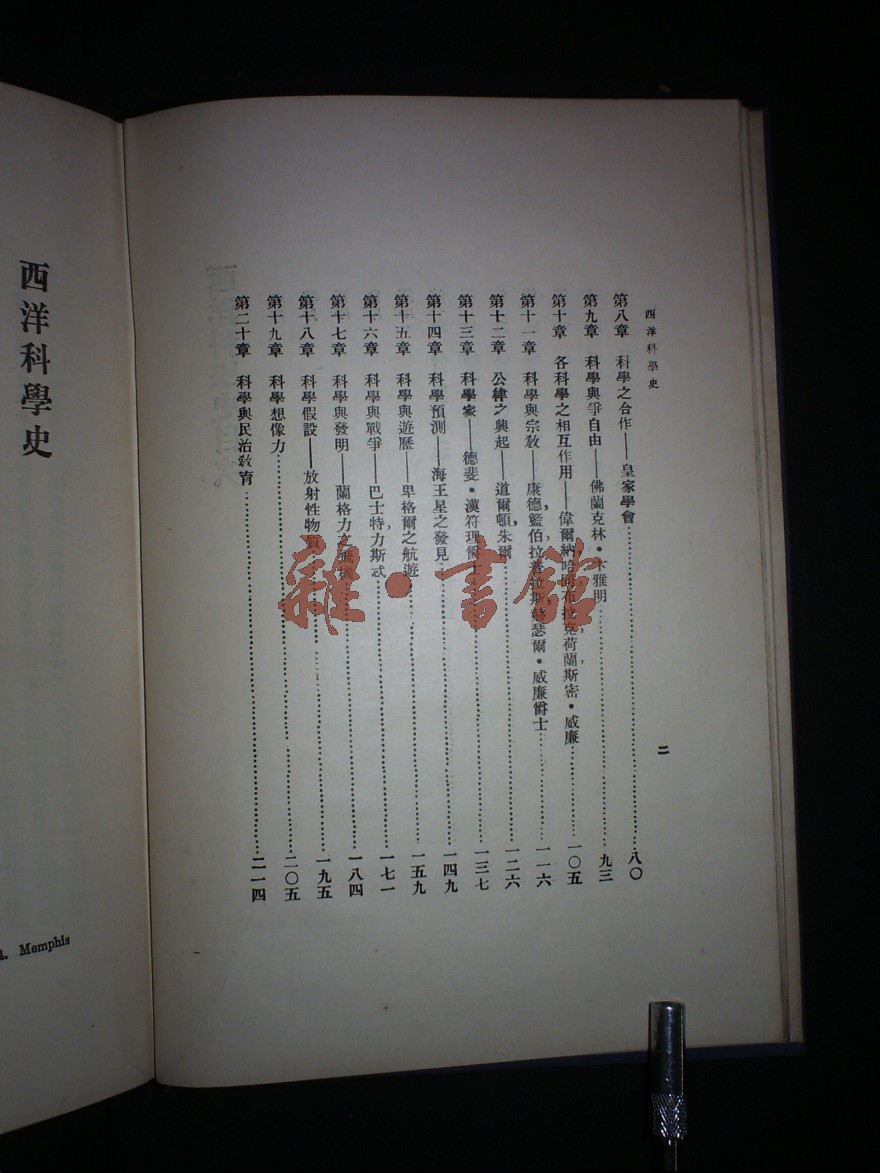 西洋科學史
第八章 科學之合作——皇家學會……八〇
第九章 科學與爭自由——佛蘭克林·卞雅明……九三
第十章 各科學之相互作用——偉爾納,哈同,布拉克,荷蘭,斯密·威廉……一〇五
第十一章 科學與宗教——康德,藍伯,拉普拉斯,赫瑟爾·威廉爵士……一一六
第十二章 公律之興起——道爾頓,朱爾……一二六
第十三章 科學家——德斐·漢符理爵士……一三七
第十四章 科學預測——海王星之發見……一四九
第十五章 科學與遊歷——卑格爾之航遊……一五九
第十六章 科學與戰爭——巴士特,力斯忒……一七一
第十七章 科學與發明——蘭格力之飛機……一八四
第十八章 科學假設——放射性物質……一九五
第十九章 科學想像力……二〇五
第二十章 科學與民治教育……二一四
二
西洋科學史
Memphis
雜·書館